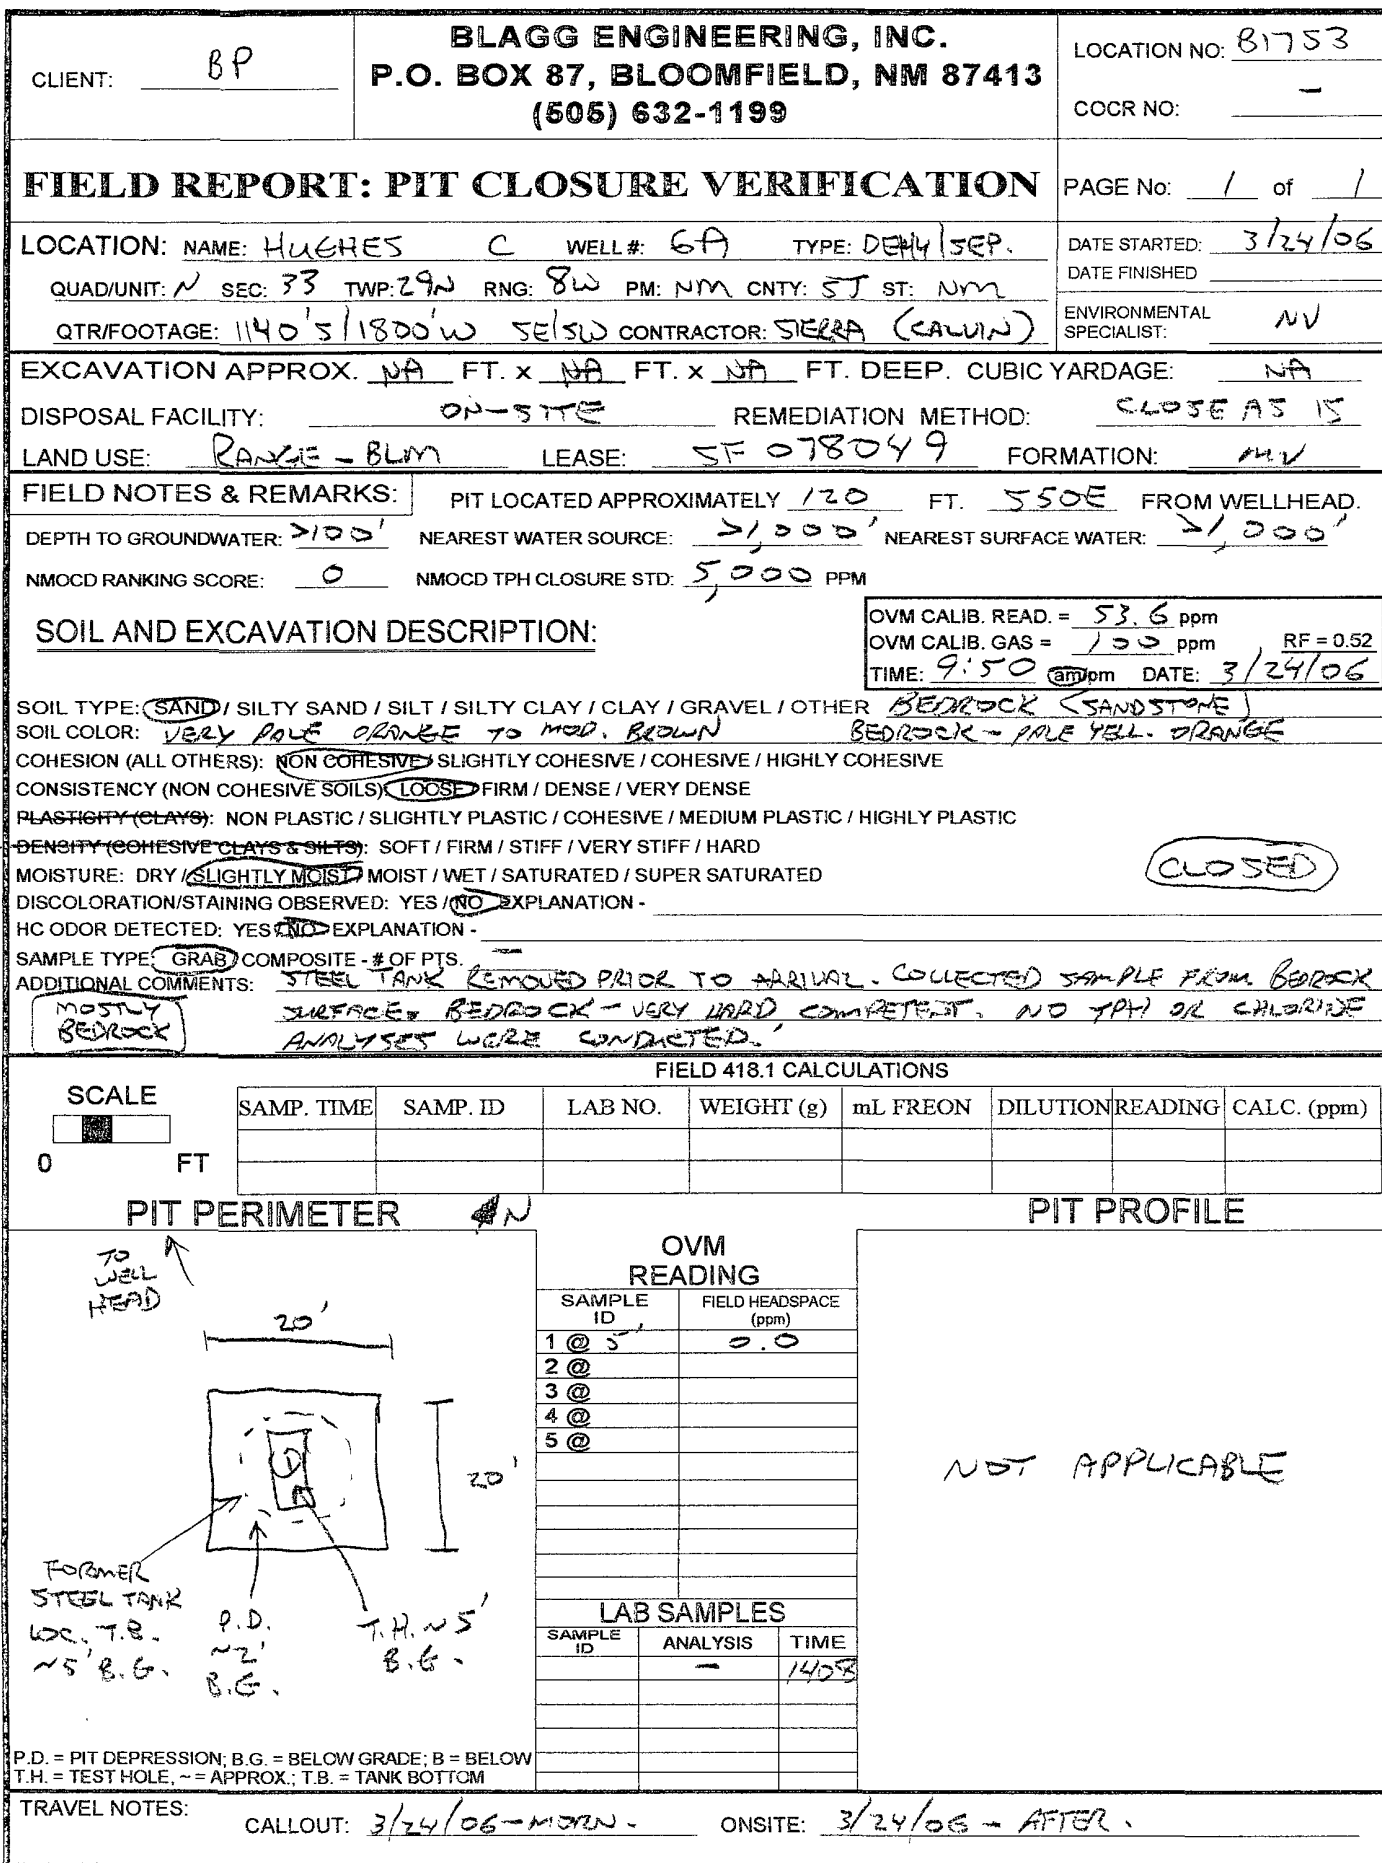 CLIENT: BP
BLAGG ENGINEERING, INC.
P.O. BOX 87, BLOOMFIELD, NM 87413
(505) 632-1199
LOCATION NO: B1753
COCR NO: -
FIELD REPORT: PIT CLOSURE VERIFICATION
PAGE No: 1 of 1
LOCATION: NAME: HUGHES C WELL #: 6A TYPE: DEHY/SEP.
QUAD/UNIT: N SEC: 33 TWP: 29N RNG: 8W PM: NM CNTY: SJ ST: NM
QTR/FOOTAGE: 1140'S/1800'W SE/SW CONTRACTOR: SIERRA (CALVIN)
DATE STARTED: 3/24/06
DATE FINISHED
ENVIRONMENTAL
SPECIALIST: NV
EXCAVATION APPROX. NA FT. x NA FT. x NA FT. DEEP. CUBIC YARDAGE: NA
DISPOSAL FACILITY: ON-SITE REMEDIATION METHOD: CLOSE AS IS
LAND USE: RANGE - BLM LEASE: SF 078049 FORMATION: MV
FIELD NOTES & REMARKS: PIT LOCATED APPROXIMATELY 120 FT. S50E FROM WELLHEAD.
DEPTH TO GROUNDWATER: >100' NEAREST WATER SOURCE: >1,000' NEAREST SURFACE WATER: >1,000'
NMOCD RANKING SCORE: 0 NMOCD TPH CLOSURE STD: 5,000 PPM
SOIL AND EXCAVATION DESCRIPTION:
OVM CALIB. READ. = 53.6 ppm
OVM CALIB. GAS = 100 ppm RF = 0.52
TIME: 9:50 am/pm DATE: 3/24/06
SOIL TYPE: SAND / SILTY SAND / SILT / SILTY CLAY / CLAY / GRAVEL / OTHER BEDROCK (SANDSTONE)
SOIL COLOR: VERY PALE ORANGE TO MOD. BROWN BEDROCK - PALE YELL. ORANGE
COHESION (ALL OTHERS): NON COHESIVE / SLIGHTLY COHESIVE / COHESIVE / HIGHLY COHESIVE
CONSISTENCY (NON COHESIVE SOILS): LOOSE / FIRM / DENSE / VERY DENSE
PLASTICITY (CLAYS): NON PLASTIC / SLIGHTLY PLASTIC / COHESIVE / MEDIUM PLASTIC / HIGHLY PLASTIC
DENSITY (COHESIVE CLAYS & SILTS): SOFT / FIRM / STIFF / VERY STIFF / HARD
MOISTURE: DRY / SLIGHTLY MOIST / MOIST / WET / SATURATED / SUPER SATURATED
CLOSED
DISCOLORATION/STAINING OBSERVED: YES / NO EXPLANATION -
HC ODOR DETECTED: YES / NO EXPLANATION -
SAMPLE TYPE: GRAB / COMPOSITE - # OF PTS. -
ADDITIONAL COMMENTS: STEEL TANK REMOVED PRIOR TO ARRIVAL. COLLECTED SAMPLE FROM BEDROCK
SURFACE. BEDROCK - VERY HARD, COMPETENT. NO TPH OR CHLORIDE
ANALYSES WERE CONDUCTED.
MOSTLY
BEDROCK
FIELD 418.1 CALCULATIONS
SCALE
0 FT
SAMP. TIME SAMP. ID LAB NO. WEIGHT (g) mL FREON DILUTION READING CALC. (ppm)
PIT PERIMETER N
PIT PROFILE
TO
WELL
HEAD
20'
20'
FORMER
STEEL TANK
LOC. T.B.
~5' B.G.
P.D.
~2'
B.G.
T.H. ~5'
B.G.
OVM
READING
SAMPLE
ID
FIELD HEADSPACE
(ppm)
1 @ 5' 0.0
2 @
3 @
4 @
5 @
NOT APPLICABLE
LAB SAMPLES
SAMPLE
ID
ANALYSIS TIME
- 1408
P.D. = PIT DEPRESSION; B.G. = BELOW GRADE; B = BELOW
T.H. = TEST HOLE, ~ = APPROX.; T.B. = TANK BOTTOM
TRAVEL NOTES:
CALLOUT: 3/24/06 - MORN. ONSITE: 3/24/06 - AFTER.